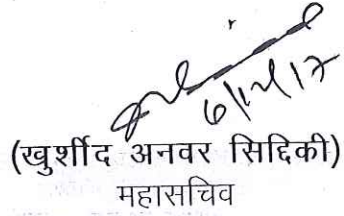 6/12/17
(खुर्शीद अनवर सिद्दिकी)
महासचिव